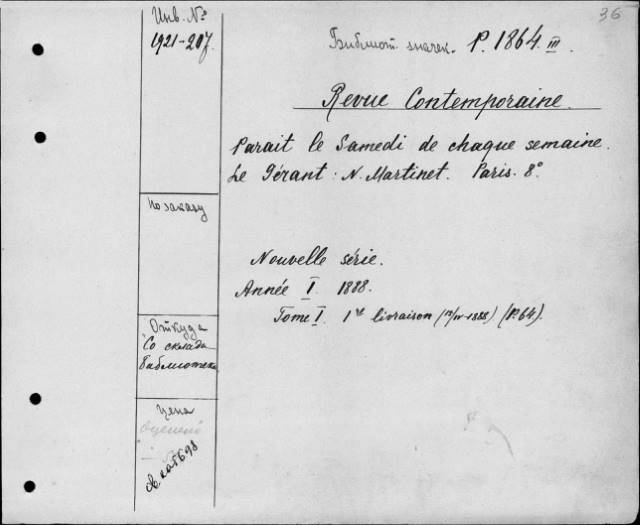 36
Инв. №
1921-207.
Библиот. значек. P. 1864 III.
Revue Contemporaine.
Parait le Samedi de chaque semaine.
Le Gérant: N. Martinet. Paris. 8°.
По заказу
Nouvelle série.
Année I. 1888.
Tome I. 1re livraison (/IV-1888) (P. 64).
Откуда
Со склада
библиотека
Цена
оценено